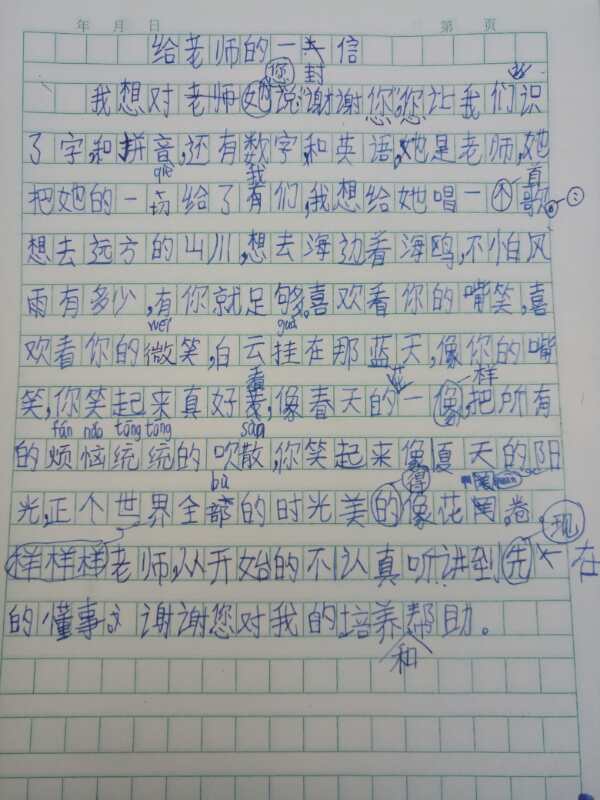 年 月 日 第 页
给老师的一封信
我想对老师您说"谢谢您",您让我们识
了字,和拼音,还有数字,和英语,她是老师,她
把她的一切给了我们,我想给她唱一个歌:
想去远方的山川,想去海边看海鸥,不怕风
雨有多少,有你就足够,喜欢看你的嘴笑,喜
欢看你的微笑,白云挂在那蓝天,像你的嘴
笑,你笑起来真好看,像春天的花一样,把所有
的烦恼统统的吹散,你笑起来像夏天的阳
光,正个世界全部的时光美得像花卷。
老师,从开始的不认真听讲到现在
的懂事,谢谢您对我的培养和帮助。